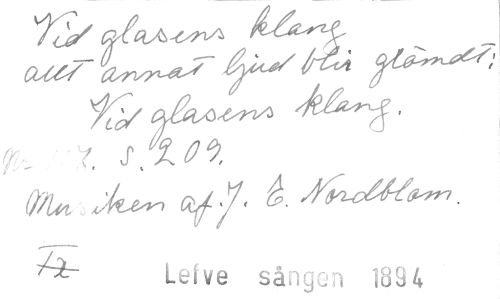 Vid glasens klang
allt annat ljud blir glömdt:
Vid glasens klang.
s. 209.
Musiken af J. E. Nordblom.
Lefve sången 1894